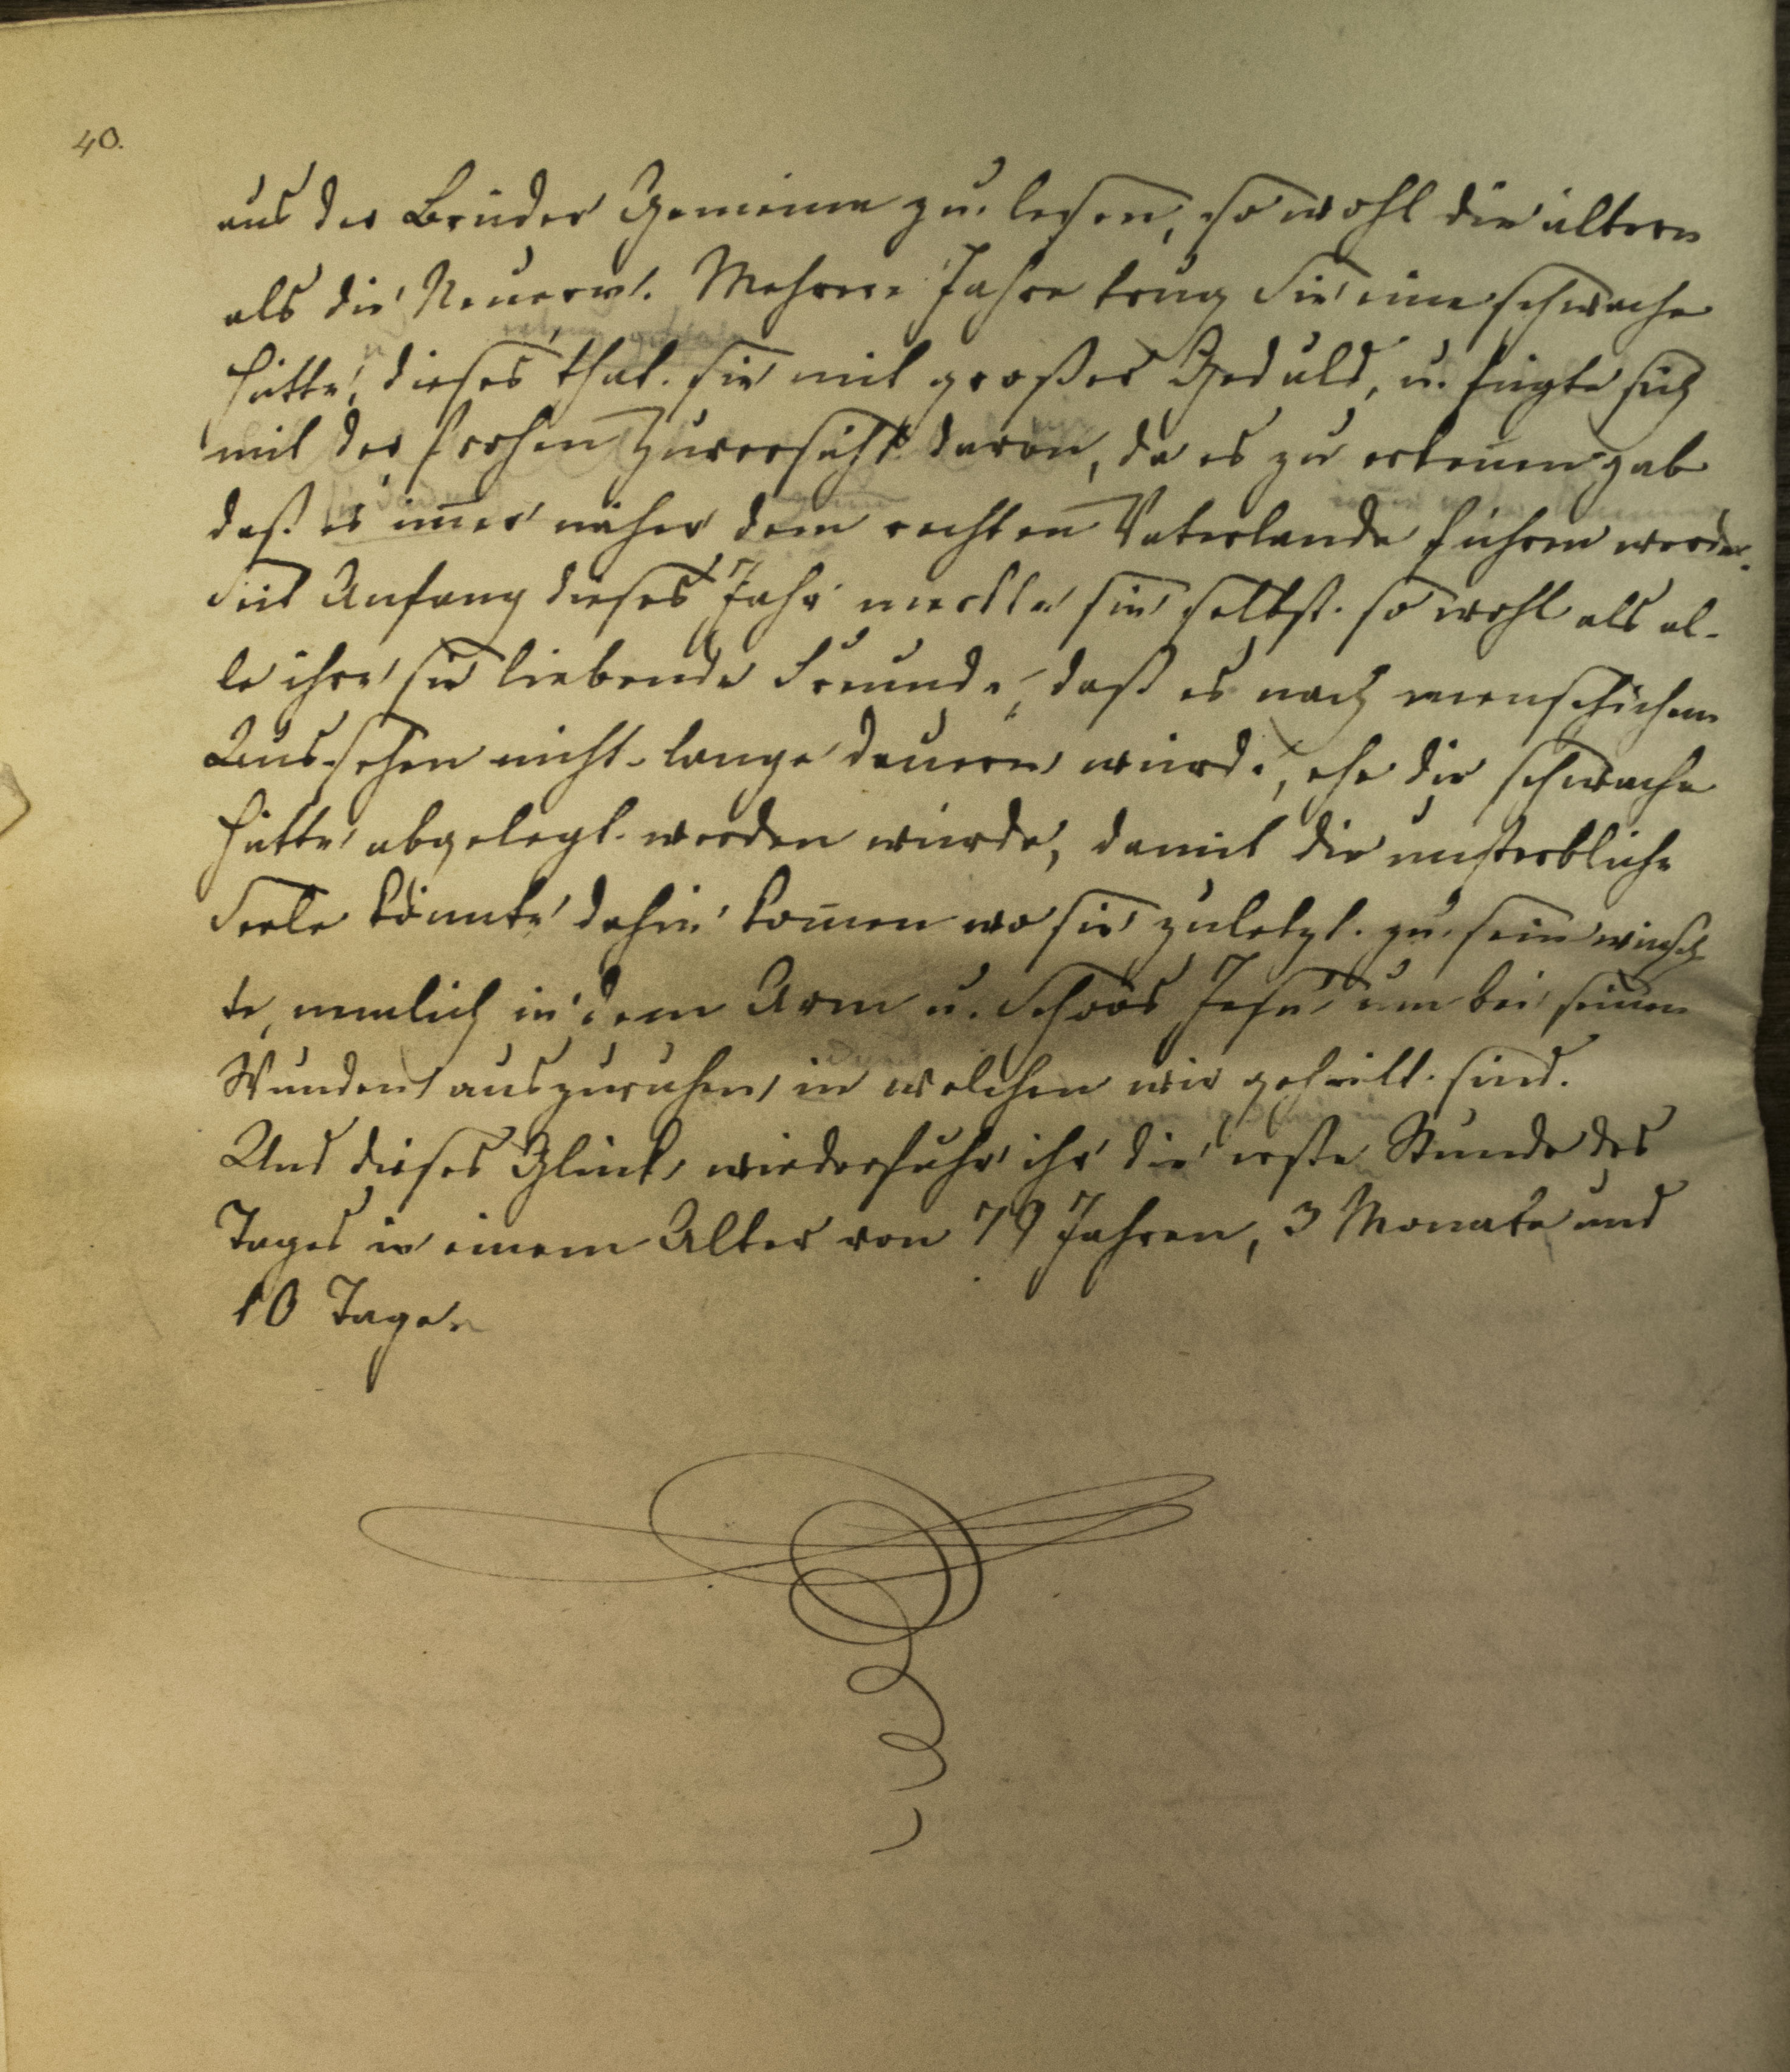 40.
aus der Brüder Gemeine zu lesen, so wohl die ältern
als die Neuern. Mehrere Jahre trug Sie eine schwache
Hütte, dieses that sie mit großer Geduld, u. fügte sich
mit der frohen Zuversicht darein, da es zu erkennen gab
daß es im̄er näher dem rechten Vaterlande führen werde.
Seit Anfang dieses Jahr merkte sie selbst so wohl als al-
le ihre sie liebende Freunde, daß es nach menschichem
Aussehen nicht lange dauern würde, ehe die schwache
Hütte abgelegt werden würde, damit die unsterbliche
Seele könnte dahin kom̄en wo sie zuletzt zu sein wünsch
te, nemlich in dem Arm u. Schoos Jesu um bei seinen
Wunden auszuruhen, in welchen wir geheilt sind.
Und dieses Glück wiederfuhr ihr die erste Stunde des
Tages in einem Alter von 79 Jahren, 3 Monate und
10 Tage.